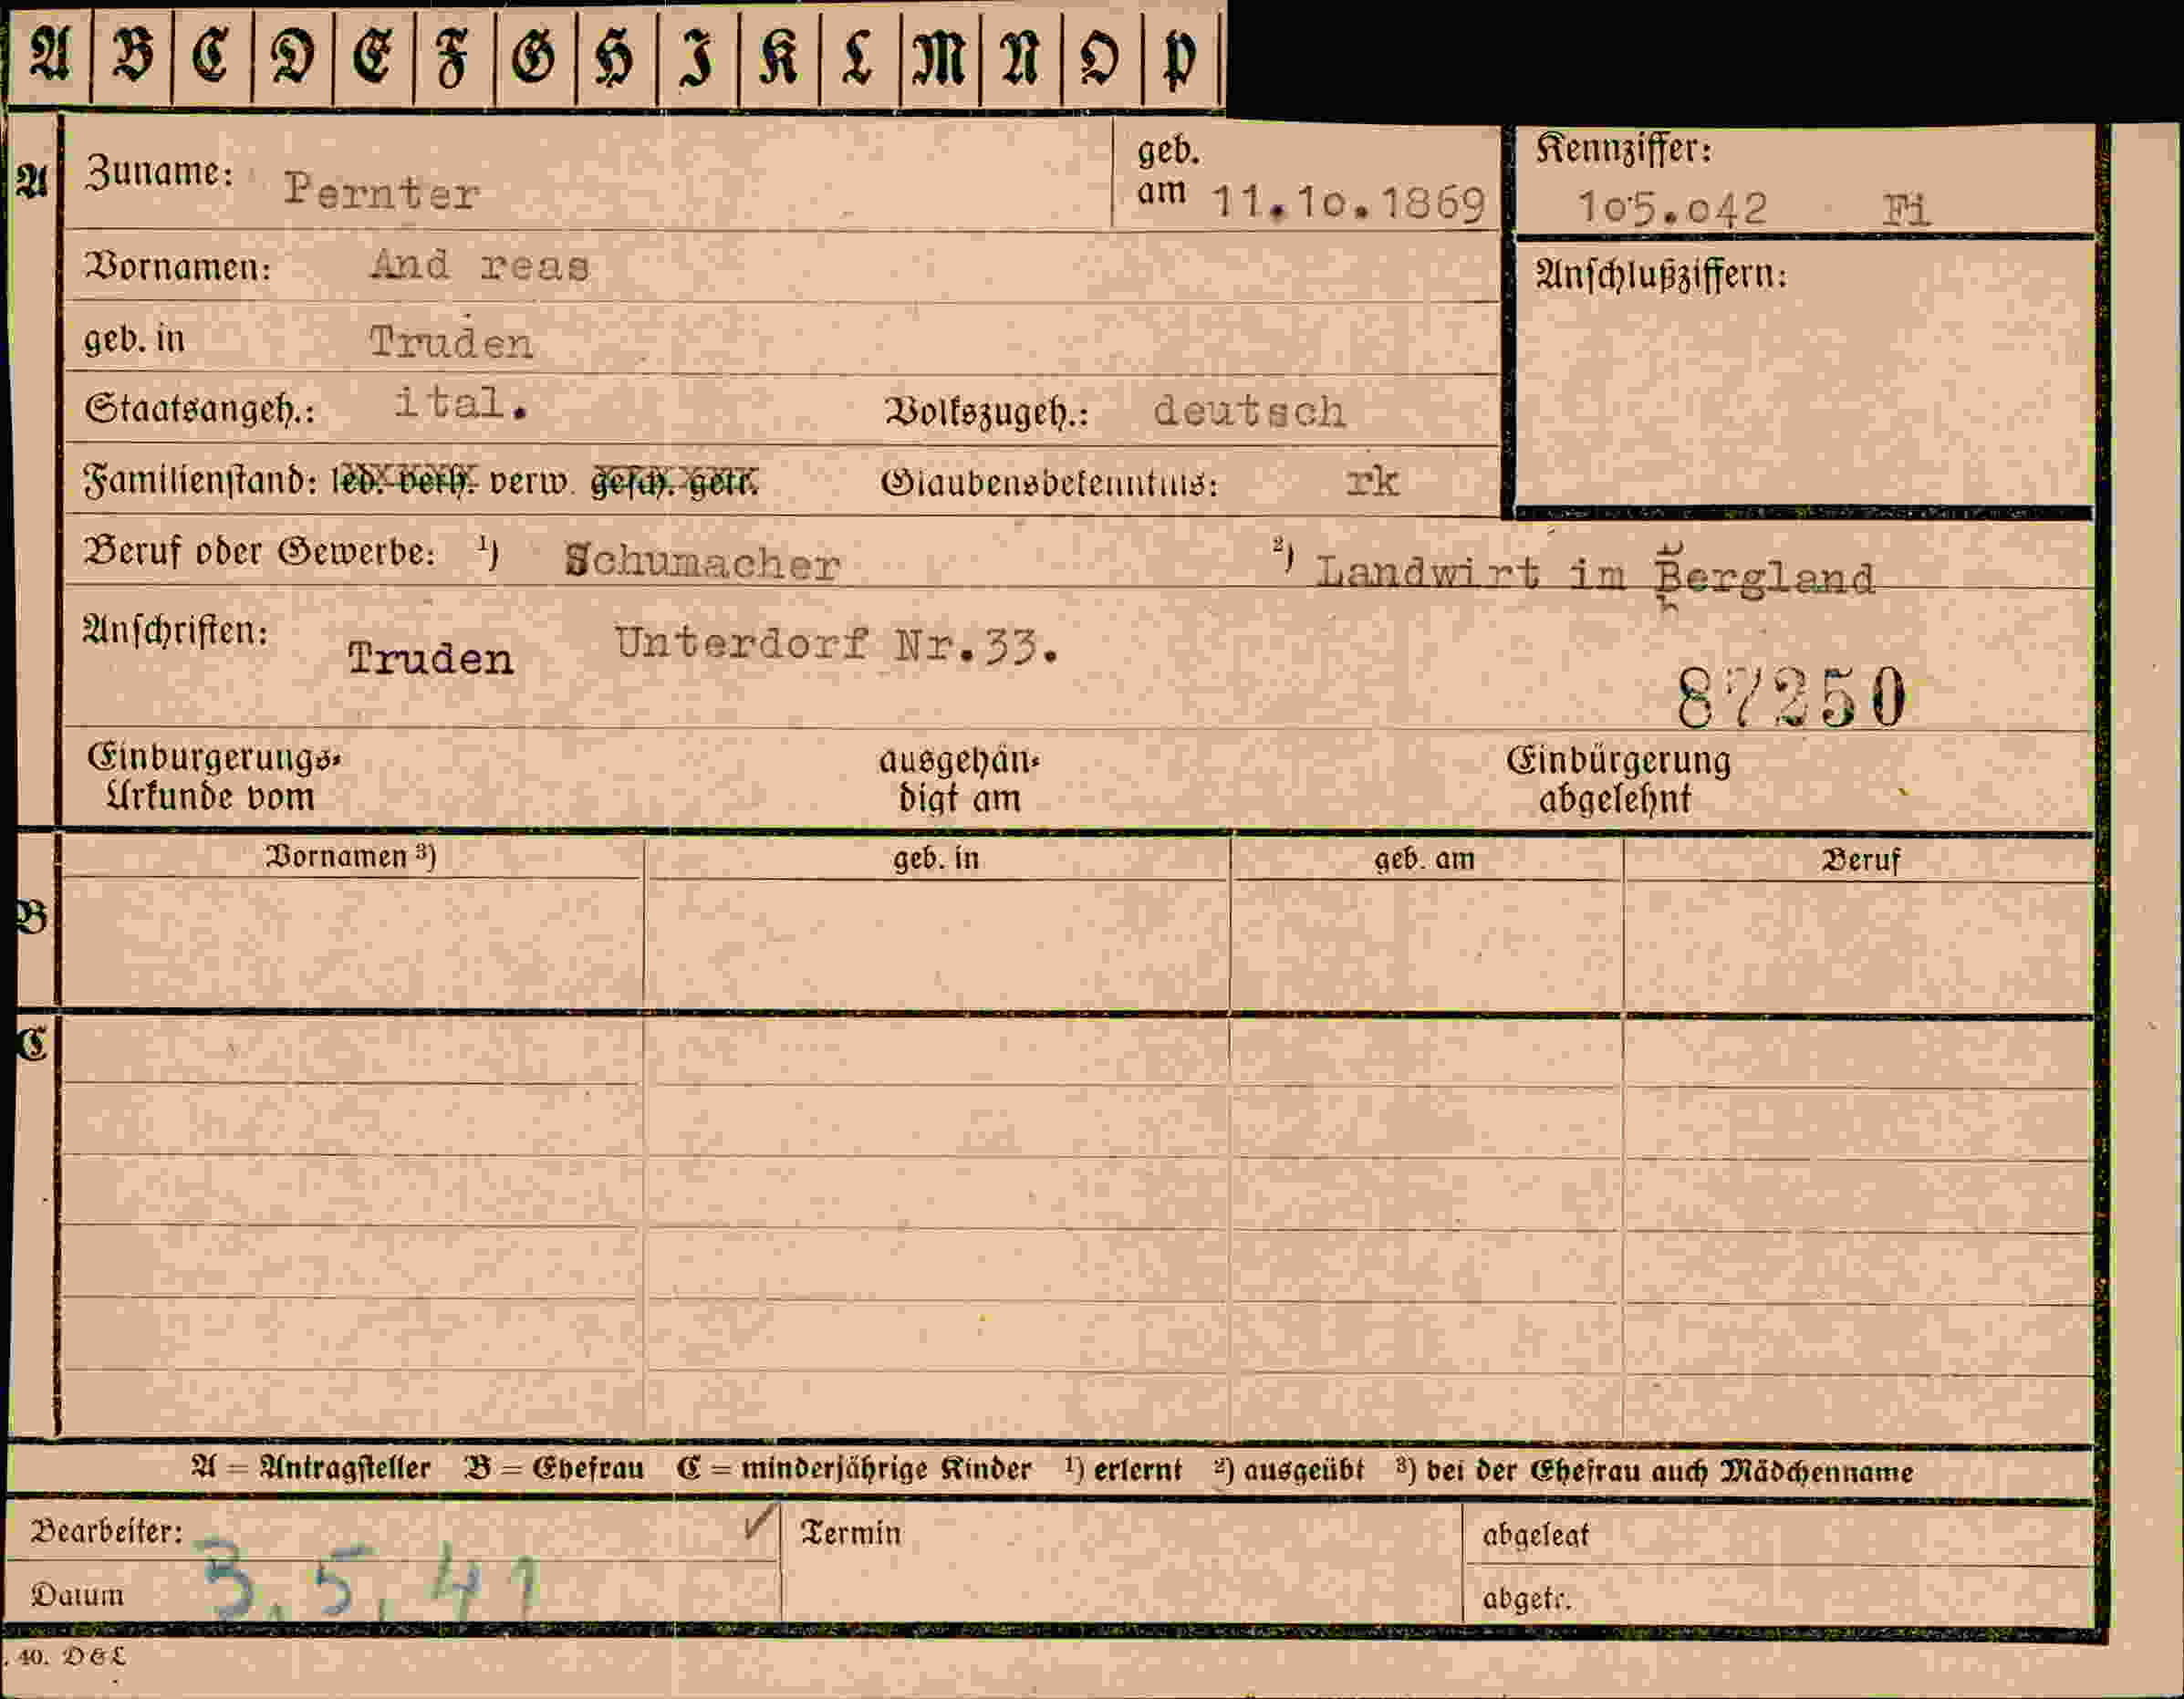 A B C D E F G H I K L M N O P
A Zuname: Pernter geb. am 11.10.1869 Kennziffer: 105.042 Fi
Vornamen: And reas Anschlußziffern:
geb. in Truden
Staatsangeh.: ital. Volkszugeh.: deutsch
Familienstand: led. verh. verw. gesch. getr. Glaubensbekenntnis: rk
Beruf oder Gewerbe: 1) Schumacher 2) Landwirt im Bergland
Anschriften: Truden Unterdorf Nr.33.
87250
Einbürgerungs- ausgehän- Einbürgerung
Urkunde vom digt am abgelehnt
Vornamen 3) geb. in geb. am Beruf
B
C
A = Antragsteller B = Ehefrau C = minderjährige Kinder 1) erlernt 2) ausgeübt 3) bei der Ehefrau auch Mädchenname
Bearbeiter: ✓ Termin abgelegt
Datum 3.5.41 abgetr.
. 40. D&L